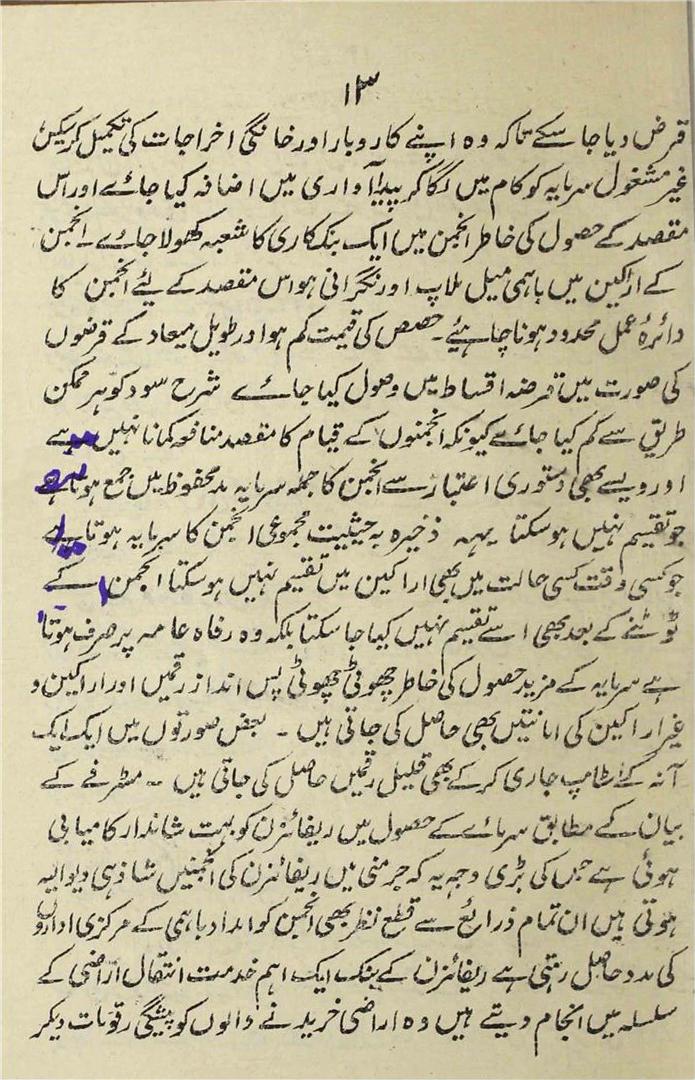 ۱۳
قرض دیا جا سکے تاکہ وہ اپنے کاروبار اور خانگی اخراجات کی تکمیل کر سکیں
غیر مشغول سرمایہ کو کام میں لگا کر پیدا آواری میں اضافہ کیا جائے اور اس
مقصد کے حصول کی خاطر انجمن میں ایک بنک کاری کا شعبہ کھولا جائے انجمن
کے اراکین میں باہمی میل ملاپ اور نگرانی ہو اس مقصد کے لئے انجمن کا
دائرۂ عمل محدود ہونا چاہیئے۔ حصص کی قیمت کم ہو اور طویل میعاد کے قرضوں
کی صورت میں قرضہ اقساط میں وصول کیا جائے شرح سود کو ہر ممکن
طریق سے کم کیا جائے کیونکہ انجمنوں کے قیام کا مقصد منافعہ کمانا نہیں ہے
اور ویسے بھی دستوری اعتبار سے انجمن کا جملہ سرمایہ مد محفوظ میں جمع ہوتا ہے
جو تقسیم نہیں ہو سکتا یہہ ذخیرہ بہ حیثیت مجموعی انجمن کا سرمایہ ہوتا ہے
جو کسی وقت کسی حالت میں بھی اراکین میں تقسیم نہیں ہو سکتا انجمن کے
ٹوٹنے کے بعد بھی اسے تقسیم نہیں کیا جا سکتا بلکہ وہ رفاہ عامہ پر صرف ہوتا
ہے سرمایہ کے مزید حصول کی خاطر چھوٹی چھوٹی پس انداز رقمیں اور اراکین و
غیر اراکین کی امانتیں بھی حاصل کی جاتی ہیں ۔ بعض صورتوں میں ایک ایک
آنہ کے اسٹامپ جاری کر کے بھی قلیل رقمیں حاصل کی جاتی ہیں ۔ مسٹر فے کے
بیان کے مطابق سرمائے کے حصول میں ریفائزن کو بہت شاندار کامیابی
ہوئی ہے جس کی بڑی وجہ یہ کہ جرمنی میں ریفائزن کی انجمنیں شاذ ہی دیوالیہ
ہوتی ہیں ان تمام ذرائع سے قطع نظر بھی انجمن کو امداد باہمی کے مرکزی اداروں
کی مدد حاصل رہتی ہے ریفائزن کے بنک ایک اہم خدمت انتقال اراضی کے
سلسلہ میں انجام دیتے ہیں وہ اراضی خریدنے والوں کو پیشگی رقومات دیکر